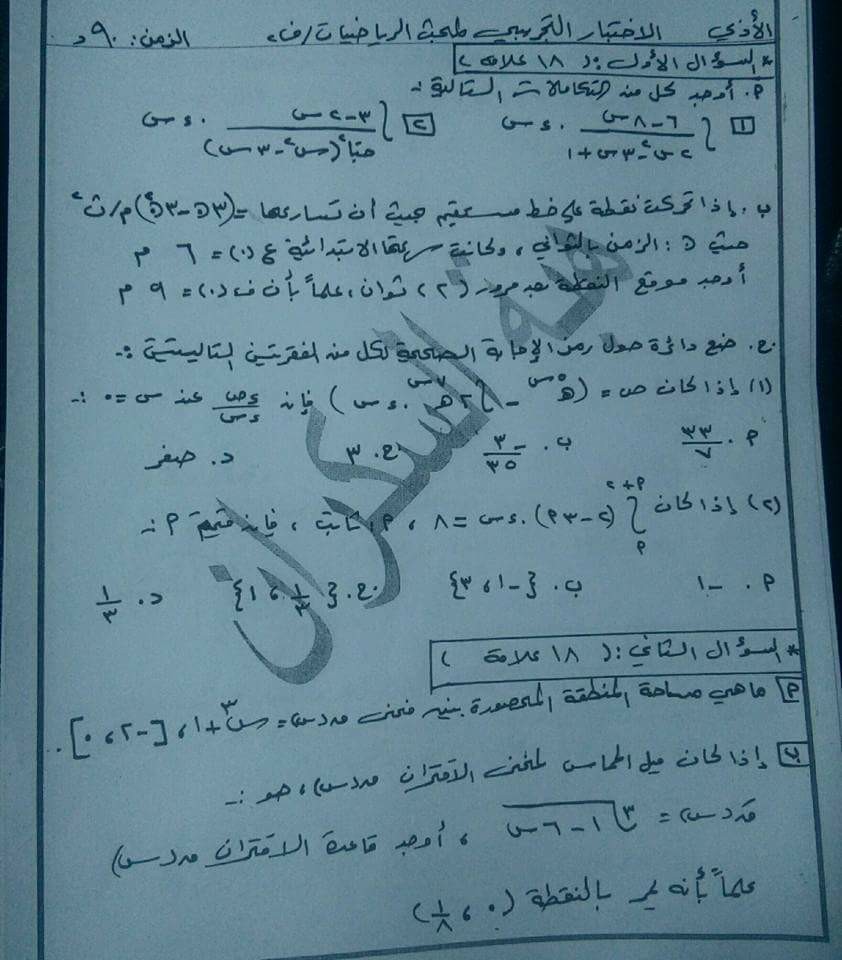 الأذي الاختبار التجريبي لمبحث الرياضيات/ف٢ الزمن: ٩٠ د
* السؤال الأول: ( ١٨ علامة )
أ. أوجد كل من التكاملات التالية :-
١ ∫ (٦-٨س)/(٢س²-٣س+١) . ءس ٢ ∫ (٣-٢س)/(جتا²(س²-٣س)) . ءس
ب. إذا تحركت نقطة على خط مستقيم حيث أن تسارعها = (٣ن-٣ن²) م/ث²
حيث ن: الزمن بالثواني، وكانت سرعتها الابتدائية ع(٠) = ٦ م
أوجد موقع النقطة بعد مرور (٢) ثوان، علماً بأن ف(٠) = ٩ م
ج. ضع دائرة حول رمز الإجابة الصحيحة لكل من الفقرتين التاليتين :-
(١) إذا كان ص = (هـ^٥س - ∫ ٢هـ^٧س . ءس) فإن ءص/ءس عند س = ٠ :-
أ. ٣٣/٧ ب. -٣/٣٥ ج. ٣ د. صفر
(٢) إذا كان ∫ من أ إلى أ+٢ (٢-٣أ) . ءس = ٨ ، أ ثابت ، فإن قيم أ :-
أ. -١ ب. {-١، ٣} ج. {١/٣، ١} د. ١/٣
* السؤال الثاني: ( ١٨ علامة )
أ ما هي مساحة المنطقة المحصورة بين منحنى ق(س) = س³+١، [-٢، ٠].
ب إذا كان ميل المماس لمنحنى الاقتران ق(س)، هو :-
قَ(س) = ∛(١-٦س) ، أوجد قاعدة الاقتران ق(س)
علماً بأنه يمر بالنقطة (٠، ١/٨)
هبة السكران